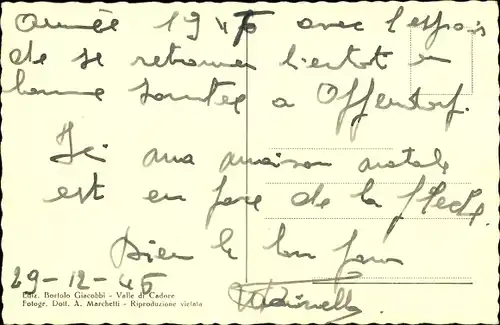 Année 19 avec l'espoir
de se retrouver bientot en
bonne santée a Offendorf.
Ici ma maison natale
est en face de la fleche.
Bien le bon jour
29-12-45
Ediz. Bortolo Giacobbi - Valle di Cadore
Fotogr. Dott. A. Marchetti - Riproduzione vietata